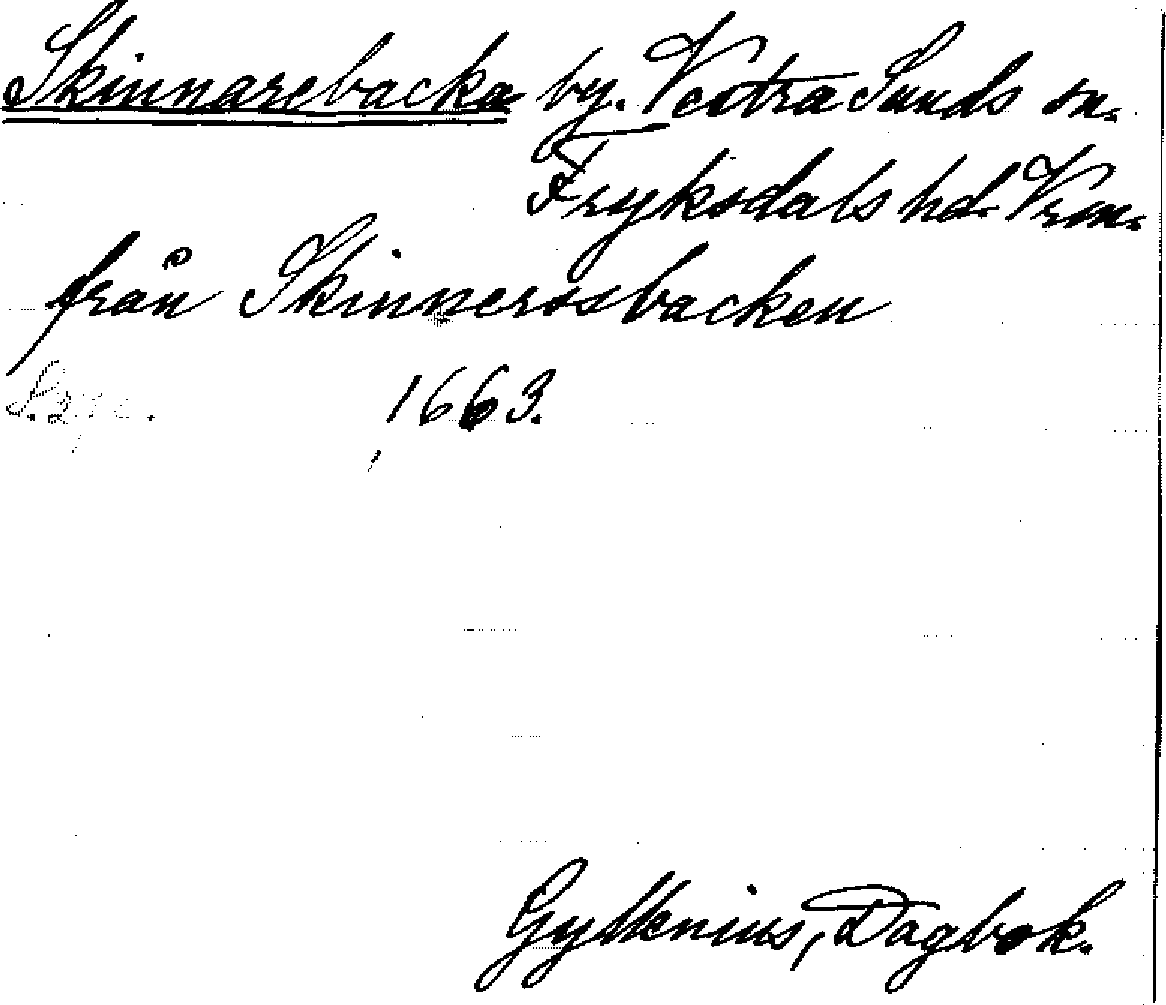 Skinnarebacka by. Vestra Sunds sn.
Fryksdals hd. Vrm.
från Skinnerosbacken
1663.
Gyllenius, Dagbok.